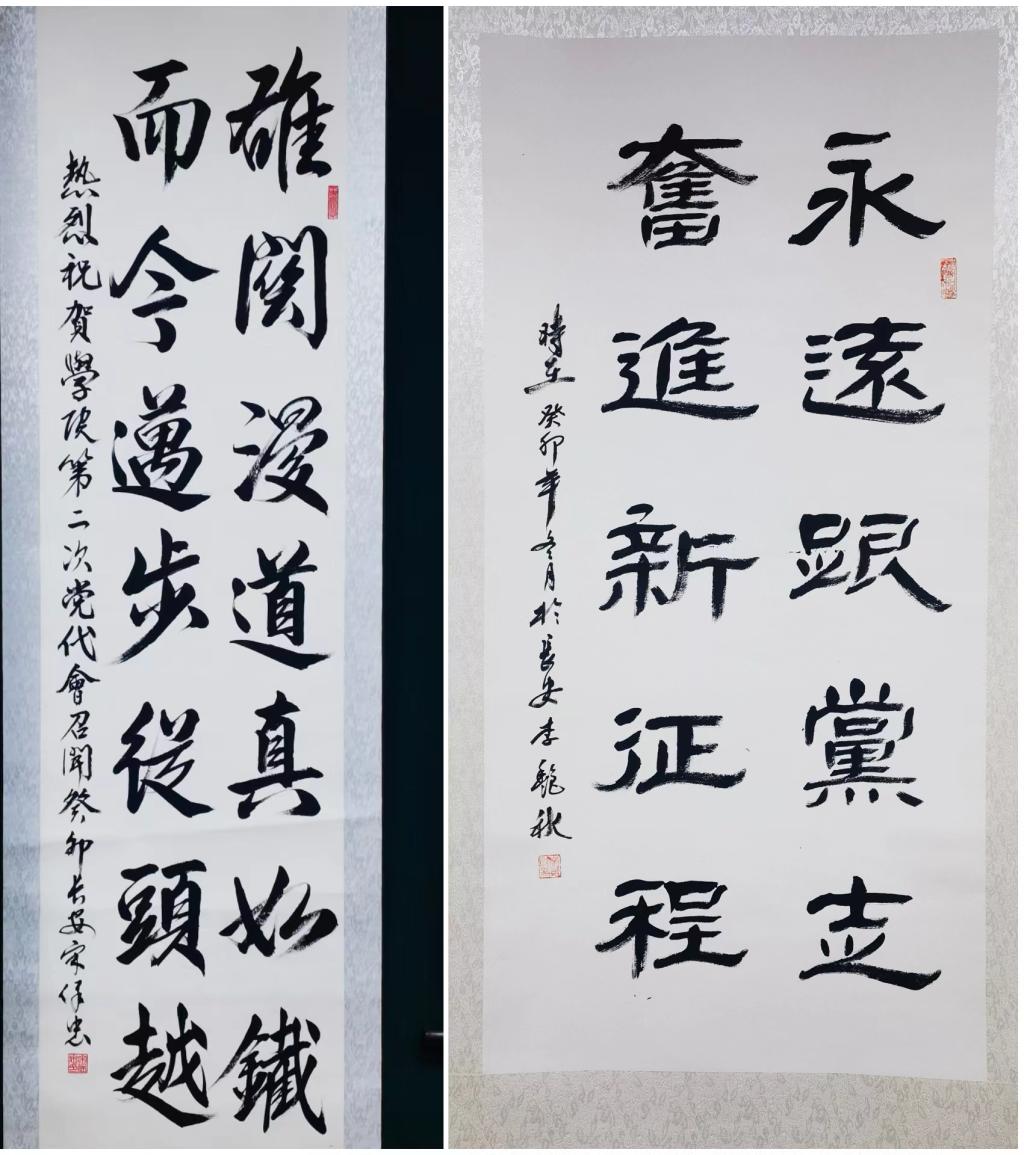 雄關漫道真如鐵
而今邁步從頭越
熱烈祝賀學院第二次党代會召開癸卯长安宋保忠
永遠跟黨走
奮進新征程
時在癸卯年冬月於長安李秋